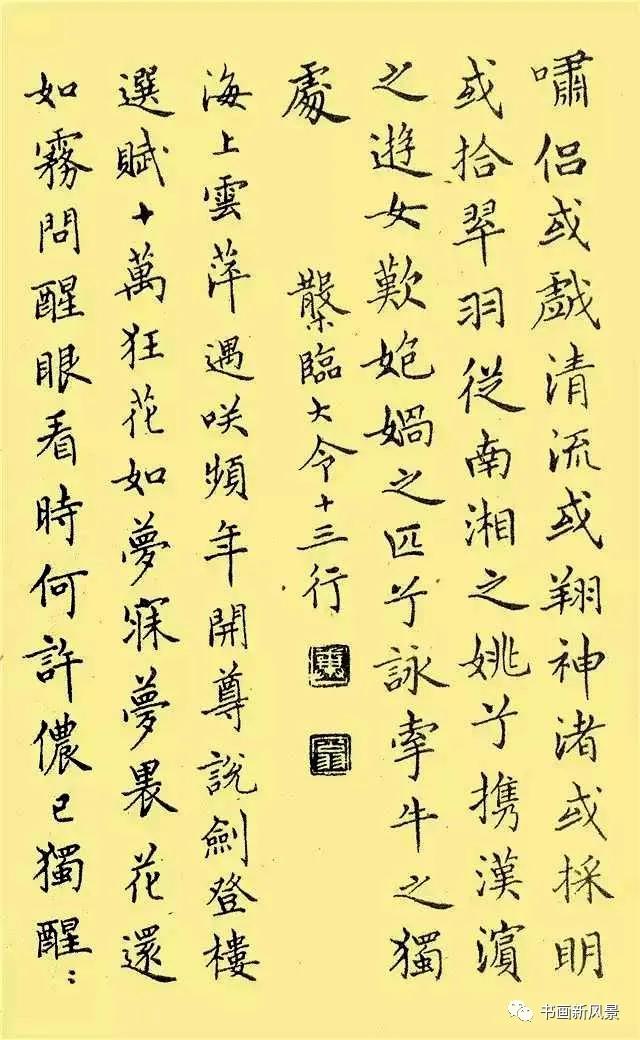 嘯侣或戲清流或翔神渚或採明
或拾翠羽從南湘之姚兮携漢濱
之遊女歎媧之匹兮詠牽牛之獨
處
臨大令十三行
海上雲萍遇咲頻年開尊說劍登樓
選賦十萬狂花如夢寐夢裏花還
如霧問醒眼看時何許儂已獨醒
书画新风景